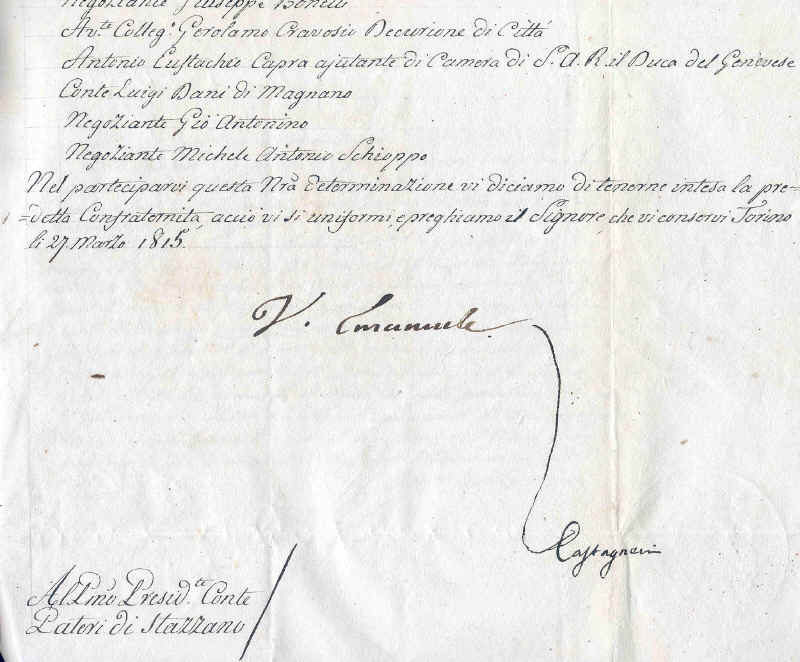 Negoziante Giuseppe Bonelli
Av.te Colleg.o Gerolamo Cravosio Decurione di Cittá
Antonio Eustachio Capra ajutante di Camera di S. A. R. il Duca del Genovese
Conte Luigi Dani di Magnano
Negoziante Gio Antonino
Negoziante Michele Antonio Schioppo
Nel parteciparvi questa Nr̃a Determinazione vi diciamo di tenerne intesa la pre=
=detta Confraternità, acciò vi si uniformi, e preghiamo il Signore, che vi conservi Torino
li 27. Marzo 1815.
V. Emanuele
Castagneri
Al Pm̃o Presid.te Conte
Pateri di Stazzano